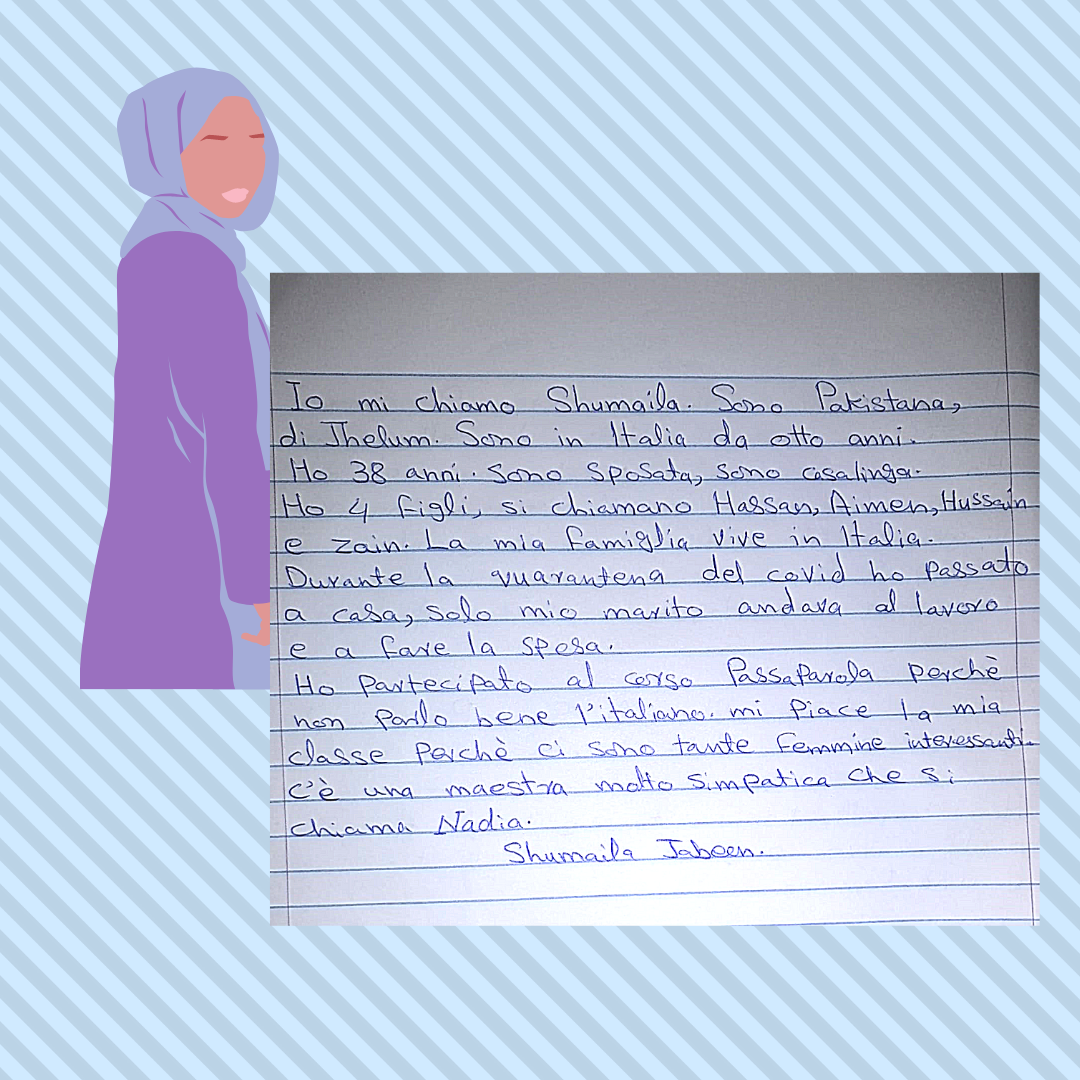 Io mi chiamo Shumaila. Sono Pakistana,
di Jhelum. Sono in Italia da otto anni.
Ho 38 anni. Sono sposata, sono casalinga.
Ho 4 figli, si chiamano Hassan, Aimen, Hussain
e zain. La mia famiglia vive in Italia.
Durante la quarantena del covid ho passato
a casa, solo mio marito andava al lavoro
e a fare la spesa.
Ho partecipato al corso Passaparola perchè
non parlo bene l'italiano. mi piace la mia
classe perchè ci sono tante femmine interessanti.
c'è una maestra molto simpatica che si
chiama Nadia.
Shumaila Jabeen.